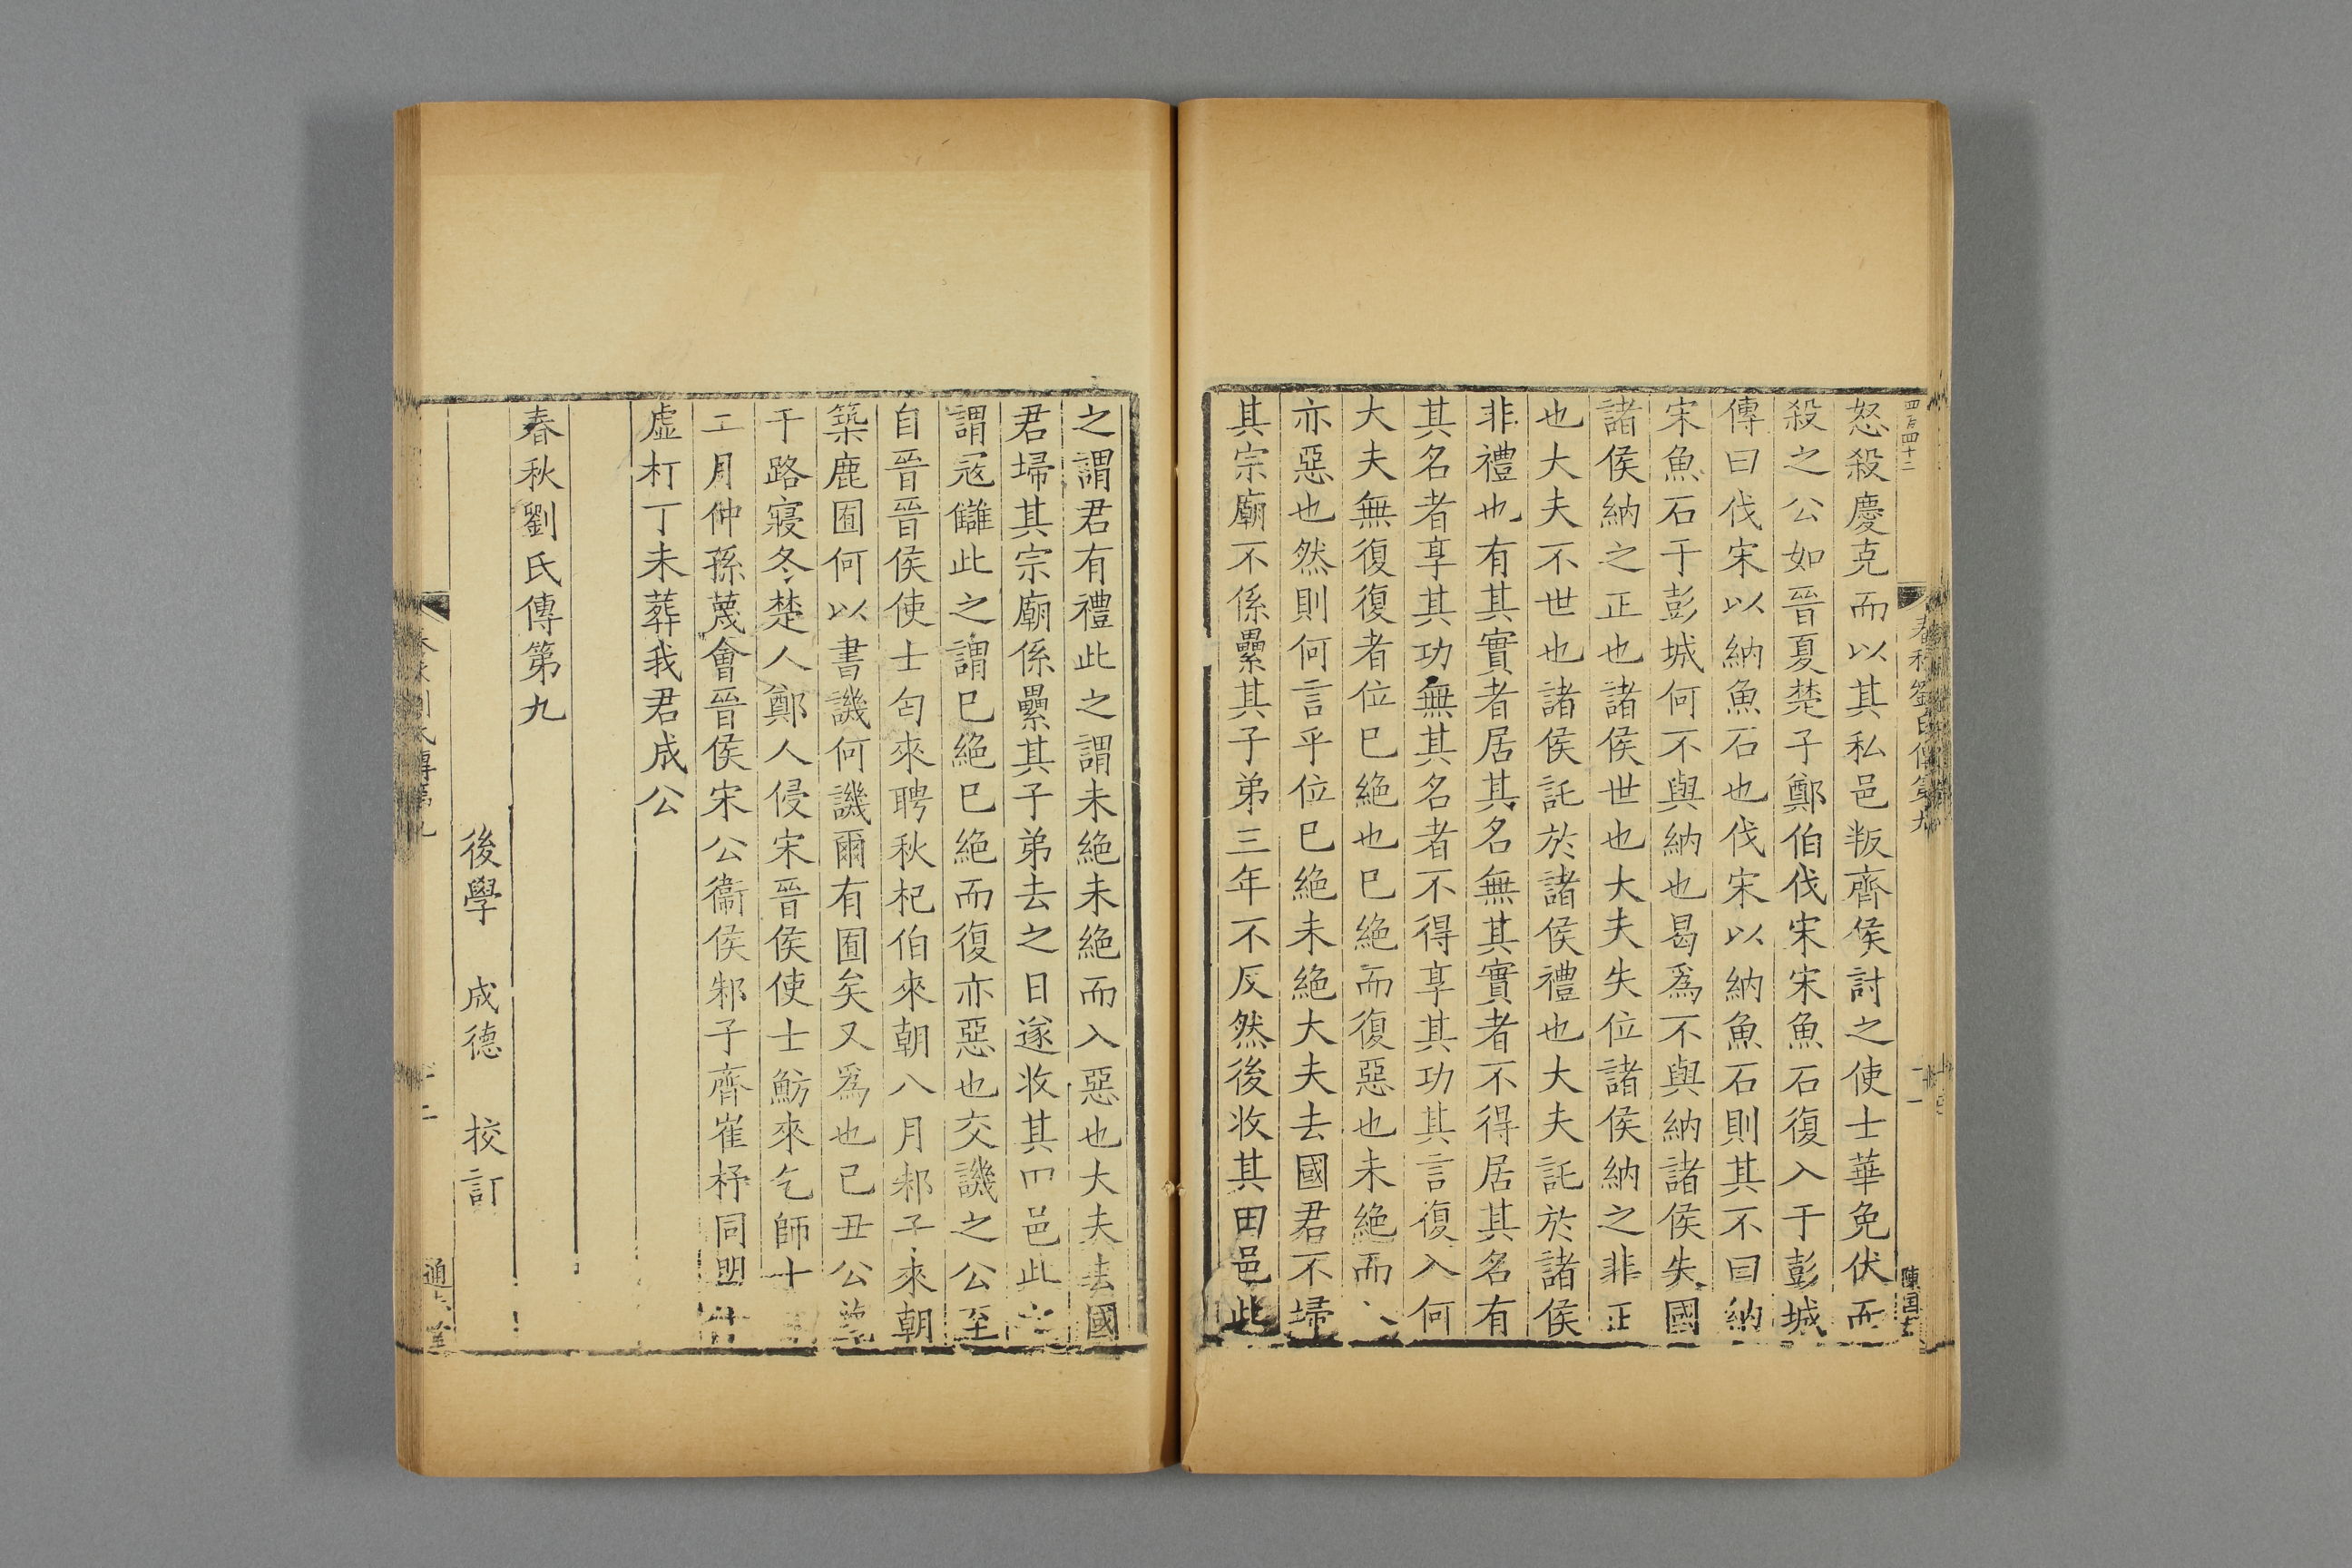 四百四十二
怒殺慶克而以其私邑叛齊侯討之使士華免伏而
殺之公如晉夏楚子鄭伯伐宋宋魚石復入于彭城
傳曰伐宋以納魚石也伐宋以納魚石則其不曰納
宋魚石于彭城何不與納也曷爲不與納諸侯失國
諸侯納之正也諸侯世也大夫失位諸侯納之非正
也大夫不世也諸侯託於諸侯禮也大夫託於諸侯
非禮也有其實者居其名無其實者不得居其名有
其名者享其功無其名者不得享其功其言復入何
大夫無復復者位已絕也已絕而復惡也未絕而
亦惡也然則何言乎位已絕未絕大夫去國君不埽
其宗廟不係纍其子弟三年不反然後收其田邑此
之謂君有禮此之謂未絕未絕而入惡也大夫去國
君埽其宗廟係纍其子弟去之日遂收其邑此
謂寇讎此之謂已絕已絕而復亦惡也交譏之公至
自晉晉侯使士匄來聘秋杞伯來朝八月邾子來朝
築鹿囿何以書譏何譏爾有囿矣又爲也已丑公薨
于路寢冬楚人鄭人侵宋晉侯使士魴來乞師十
二月仲孫蔑會晉侯宋公衞侯邾子齊崔杼同盟
虛朾丁未葬我君成公
春秋劉氏傳第九
後學 成德 校訂
春秋劉氏傳第九